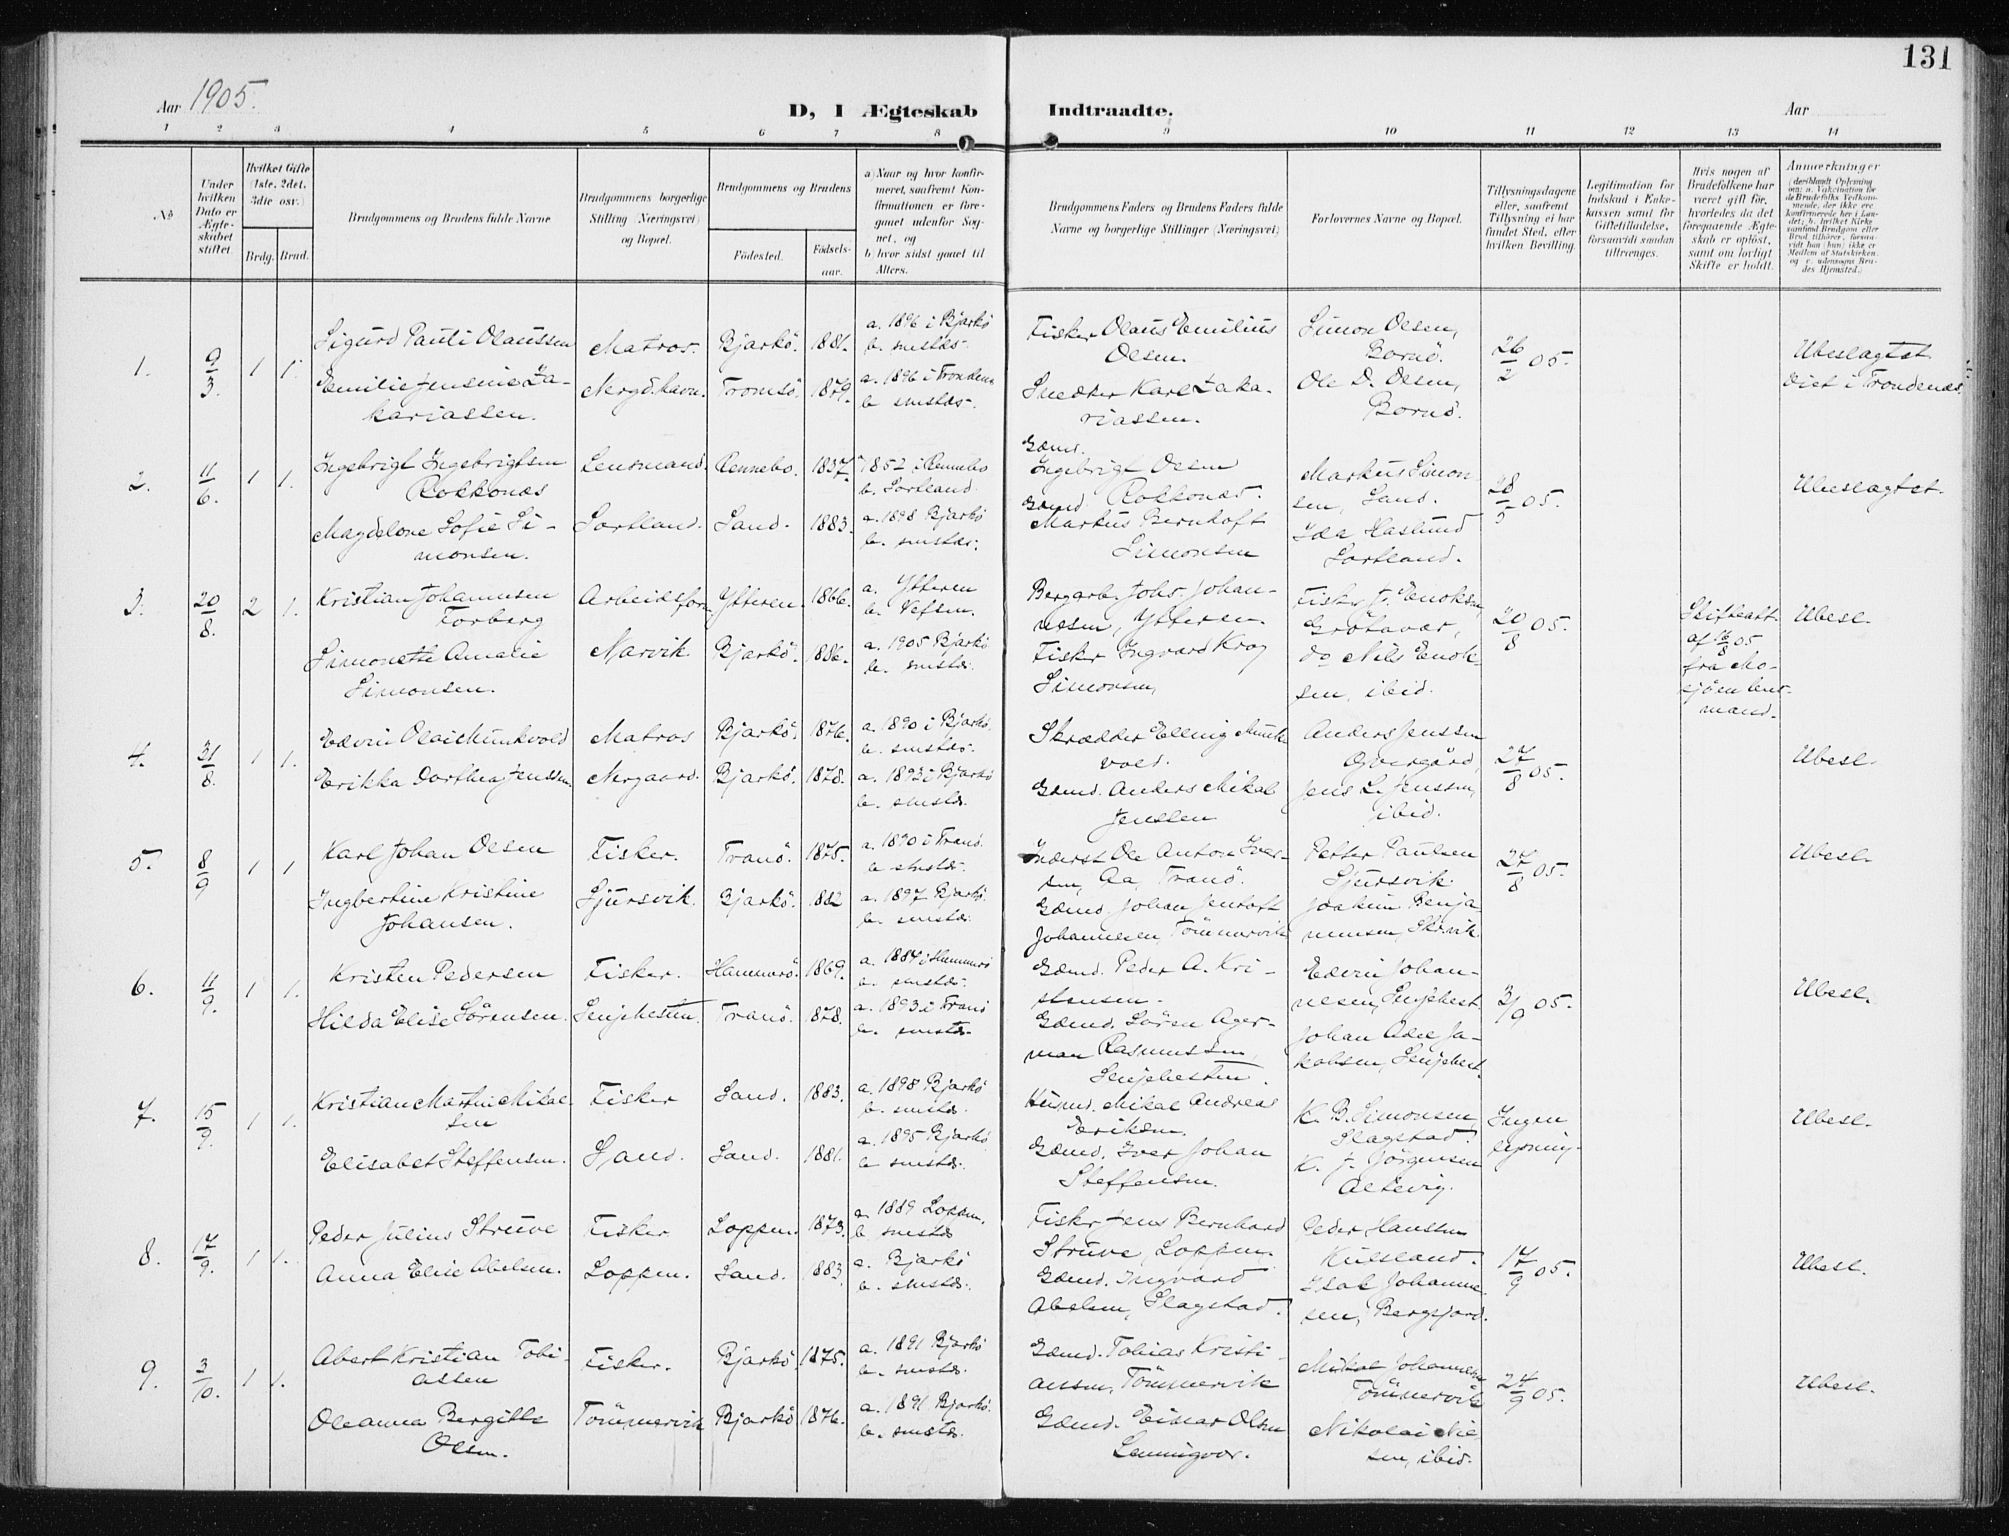 131
Aar 1905.
D, I Ægteskab Indtraadte.
Aar
1 2 3 4 5 6 7 8 9 10 11 12 13 14
No
Under hvilken Dato er Ægteskabet stiftet.
Hvilket Gifte (1ste, 2det, 3die osv.)
Brdg. Brud.
Brudgommens og Brudens fulde Navne
Brudgommens borgerlige Stilling (Næringsvei) og Bopæl.
Brudgommens og Brudens
Fødested.
Fødselsaar.
a) Naar og hvor konfirmeret, saafremt Konfirmationen er foregaaet udenfor Sognet, og
b hvor sidst gaaet til Alters.
Brudgommens Faders og Brudens Faders fulde Navne og borgerlige Stillinger (Næringsvei)
Forlovernes Navne og Bopæl.
Tillysningsdagene eller, saafremt Tillysning ei har fundet Sted, efter hvilken Bevilling.
Legitimation for Indskud i Enkekassen samt for Giftetilladelse, forsaavidt saadan tiltrænges.
Hvis nogen af Brudefolkene har været gift før, hvorledes da det foregaaende Ægteskab er opløst, samt om lovligt Skifte er holdt.
Anmærkninger
(deriblandt Oplysning om: a. Vakcination for de Brudefolks Vedkommende, der ikke ere konfirmerede her i Landet; b. hvilket Kirkesamfund Brudgom eller Brud tilhører, forsaavidt han (hun) ikke er Medlem af Statskirken, og c. udensogns Brudes Hjemsted.)
1. 9/3. 1 1.
Sigurd Pauli Olaussen
Matros.
Bjarkö. 1881.
a. 1896 i Bjarkö
b. smstds.
Emilie Jensine Zakariassen.
Nergd.havn.
Tromsö. 1879.
a. 1896 i Trondenæs
b. smstds.
Fisker Olaus Emilius Olsen.
Snedker Karl Zakariassen.
Simon Olsen, Bornö.
Ole D. Olsen, Bornö.
26/2 05.
Ubeslægtet
viet i Trondenæs.
2. 11/6. 1 1.
Ingebrigt Ingebrigtsen Rokkonæs
Lensmand.
Rennebo. 1837.
1852 i Rennebo
b. Sortland.
Magdelone Sofie Simonsen.
Sortland.
Sand. 1883.
a. 1898 Bjarkö
b. smstds.
Gdmd. Ingebrigt Olsen Rokkonæs.
Gdmd Markus Bernhoft Simonsen
Markus Simonsen, Sand.
Ida Haslund Sortland.
28/5 05.
Ubeslægtet.
3. 20/8. 2 1.
Kristian Johannesen Forberg
Arbeidsform.
Ytteren. 1866.
a. Ytteren
b. Vefsen.
Simonette Amalie Simonsen.
Narvik
Bjarkö. 1886.
a. 1905 Bjarkö
b. smstds.
Bergarb. Johs. Johannesen, Ytteren.
Fisker Ingvard Krog Simonsen,
Fisker J. Enoksen, Grötavær,
do Nils Enoksen, ibid.
20/8 05.
Skifteatt. af 16/8 05 fra Mosjøen lensmand.
Ubesl.
4. 31/8. 1 1.
Edvin Olai Munkvold
Matros
Bjarkö. 1876.
a. 1890 i Bjarkö.
b. smstds.
Erikka Dorthea Jenssen.
Nergaard.
Bjarkö. 1878.
a. 1893 i Bjarkö
b. smstds.
Skrædder Elling Munkvold.
Gdmd. Anders Mikal Jenssen
Anders Jenssen Øvergård,
Jens L. Jenssen, ibid.
27/8 05.
Ubesl.
5. 8/9 1 1
Karl Johan Olsen
Fisker.
Tranö. 1875.
a. 1890 i Tranö.
b. smstds.
Ingbertine Kristine Johansen.
Sjursvik.
Bjarkö. 1882
a. 1897 Bjarkö.
b. smstds.
Inderst Ole Anton Iversen, Aa, Tranö.
Gdmd. Johan Jentoft Johannesen, Tömmervik
Petter Paulsen Sjursvik.
Joakim Benjaminsen, Skrivik.
27/8 05.
Ubesl.
6. 11/9. 1 1.
Kristen Pedersen
Fisker.
Hammerö. 1869.
a. 1884 i Hammerö
b. smstds.
Hilda Elise Sörensen.
Senjehesten.
Tranö. 1878.
a. 1893 i Tranö
b. smstds.
Gdmd. Peder A. Kristensen.
Gdmd. Sören Agerman Rasmussen, Senjehesten.
Edvin Johannesen, Senjehest.
Johan Adel Jakobsen, Senjehest.
3/9 05.
Ubesl.
7. 15/9. 1 1.
Kristian Martin Mikalsen
Fisker
Sand. 1883.
a. 1898 Bjarkö
b. smstds.
Elisabet Steffensen.
Sand.
Sand. 1881.
a. 1895 Bjarkö
b. smstds.
Husmd. Mikal Andreas Eriksen.
Gdmd. Iver Johan Steffensen.
K. B. Simonsen, Slagstad.
K. J. Jörgensen Altevig.
Ingen lysning.
Ubesl.
8. 17/9. 1 1.
Peder Julius Struve
Fisker
Loppen. 1873.
a. 1889 Loppen.
b. smstds
Anna Elise Abelsen.
Loppen.
Sand. 1883.
a. Bjarkö
b. smstds.
Fisker Jens Bernhard Struve, Loppen.
Gdmd. Ingvard Abelsen, Slagstad.
Peder Hanssen Kulsland.
Isak Johannesen, Bergsfjord.
17/9 05.
Ubesl.
9. 3/10. 1 1.
Abert Kristian Tobiassen
Fisker.
Bjarkö 1875.
a. 1891 Bjarkö
b. smstds.
Oleanna Bergitte Olsen.
Tömmervik
Bjarkö 1876.
a. 1891 Bjarkö.
b. smstds.
Gdmd. Tobias Kristiansen, Tömmervik
Gdmd. Einar Olsen Lemmingvær.
Mikal Johannesen Tömmervik
Nikolai Nilsen, ibid.
24/9 05.
Ubesl.